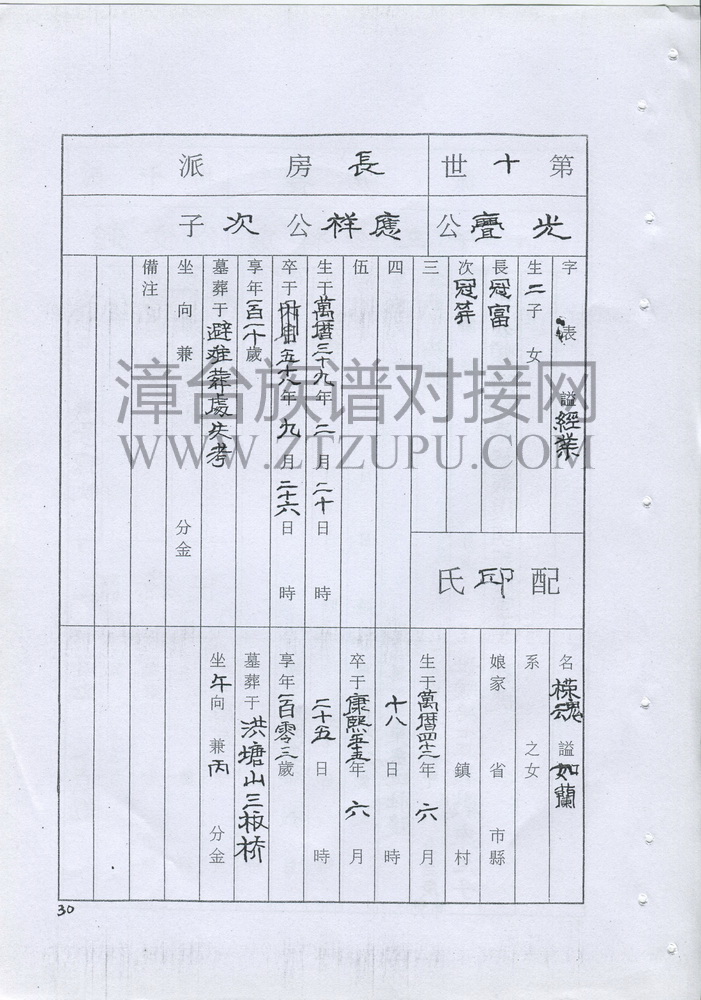 第十世
長房派
光疊公
應祥公次子
字 表 諡經業
生二子女
長冠富
次冠
三
四
伍
生于萬曆三十九年二月二十日時
卒于五十八年九月二十六日時
享年一百二十歲
墓葬于避難葬處失考
坐向兼分金
備注:
配邱氏
名魂諡如蘭
系之女
娘家省市縣
鎮村
生于萬曆四十三年六月
十八日時
卒于康熙五十五年六月
二十五日時
享年一百零三歲
墓葬于洪塘山三板桥
坐午向兼丙分金
30
漳台族谱对接网
WWW.ZTZUPU.COM